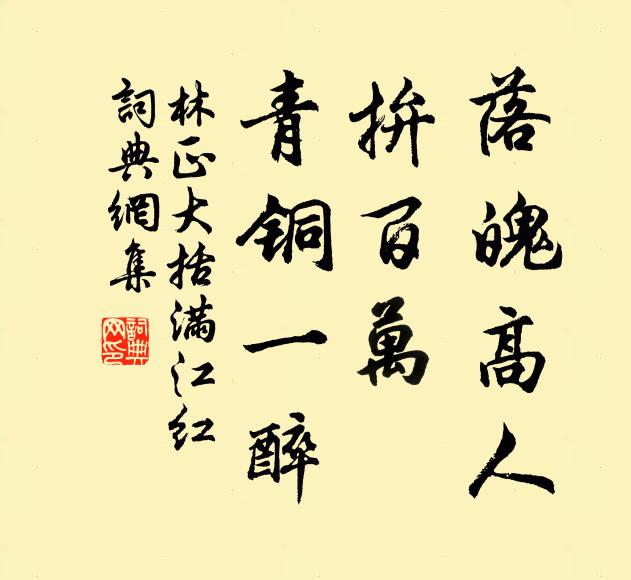 落魄高人
拚百萬
青铜一醉
林正大括满江红
詞典網集
詞典網印